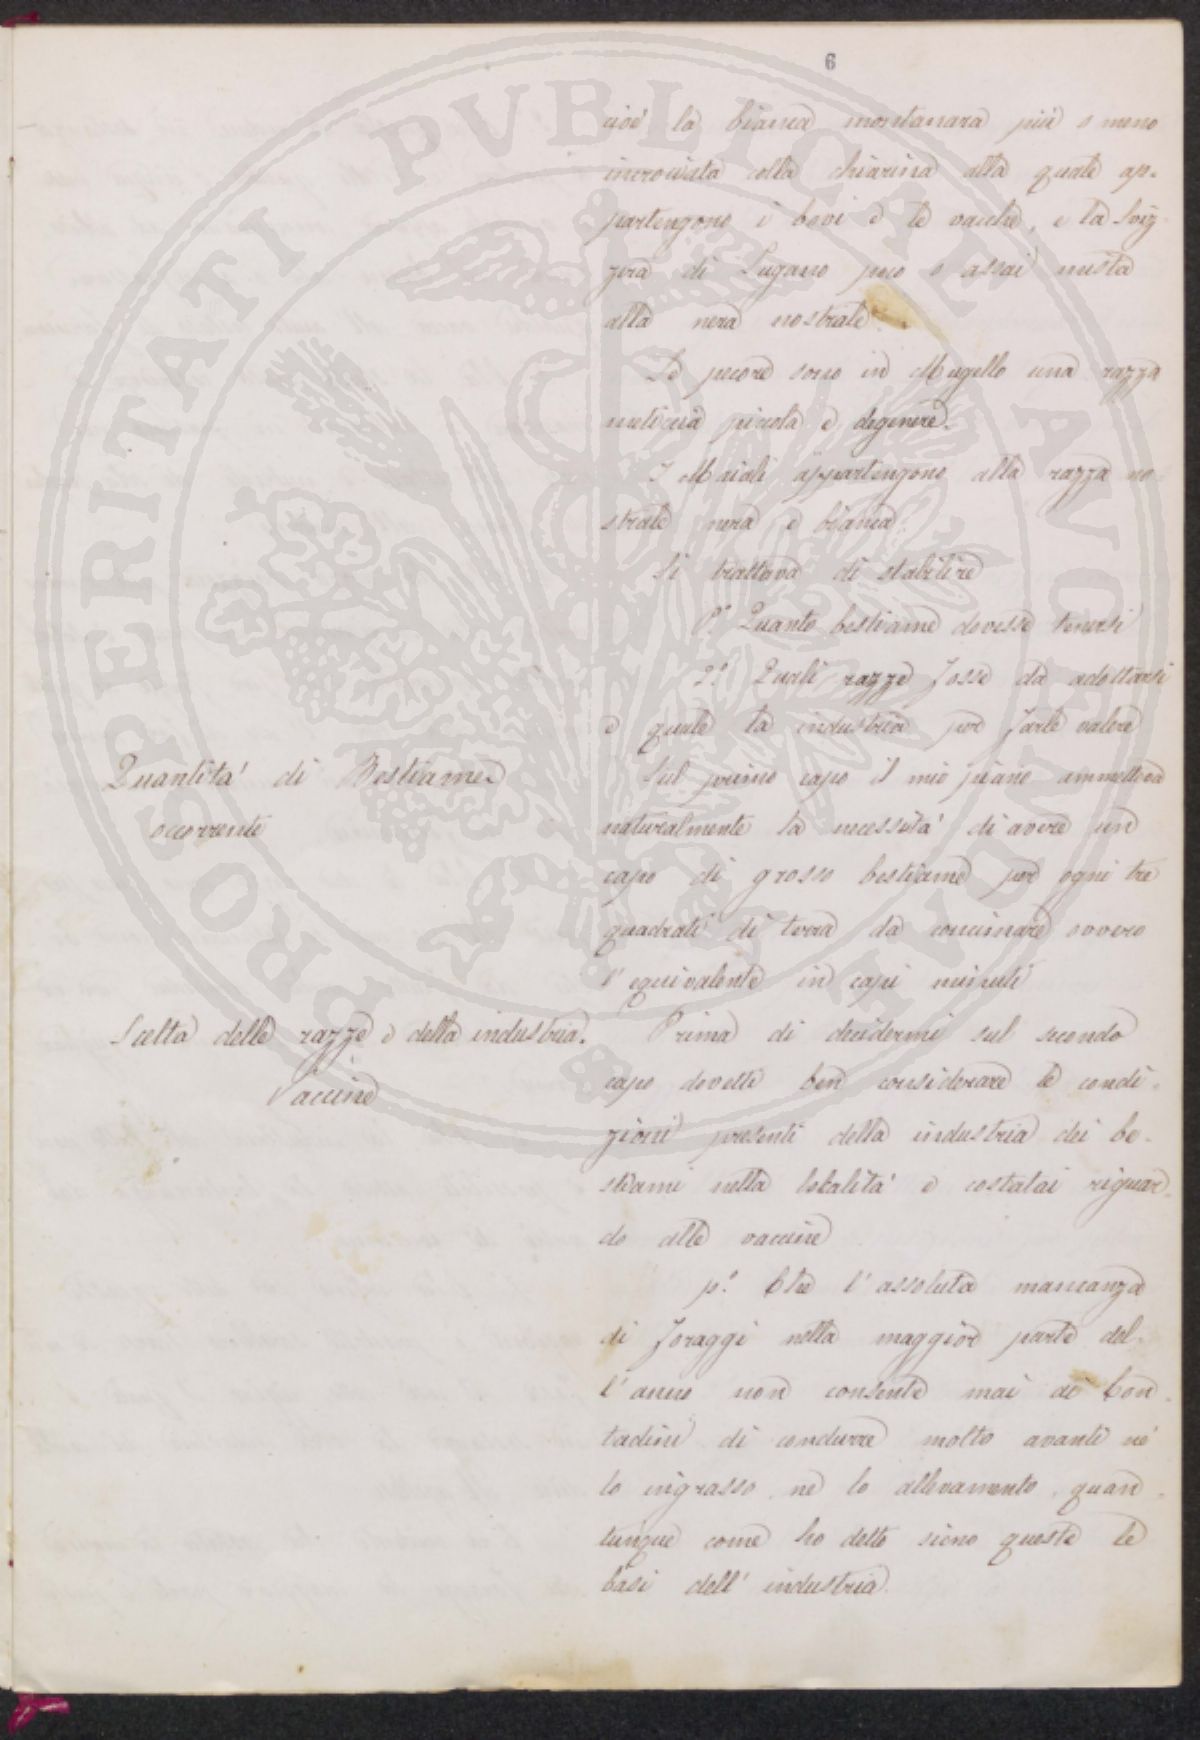 6
cioè la bianca montanara più o meno
incrociata colla chiarina alla quale ap-
partengono i bovi e le vacche, e la Sviz-
zera di Lugano poco o assai mista
alla nera nostrale.
Le pecore sono in Mugello una razza
meticcia piccola e degenere.
I Maiali appartengono alla razza no-
strale nera e bianca.
Si trattava di stabilire
P.º Quanto bestiame dovesse tenersi
2.º Quali razze fosse da adottarsi
e quale la industria per farle valere
Quantita' di Bestiame
occorrente
Sul primo capo il mio piano ammetteva
naturalmente la necessita' di avere un
capo di grosso bestiame per ogni tre
quadrati di terra da concimare ovvero
l'equivalente in capi minuti
Scelta delle razze e della industria.
Vaccine
Prima di decidermi sul secondo
capo dovetti ben considerare le condi-
zioni presenti della industria dei be-
stiami nella localita' e costatai riguar-
do alle vaccine
p.º Che l'assoluta mancanza
di foraggi nella maggior parte del-
l'anno non consente mai ai Con-
tadini di condurre molto avanti nè
lo ingrasso, nè lo allevamento, quan-
tunque come ho detto sieno queste le
basi dell'industria.
PROSPERITATI PVBLICAE AVGENDAE